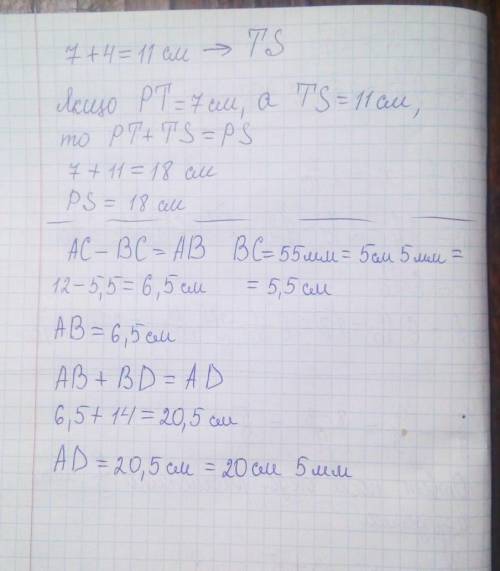 7 + 4 = 11 см → TS
Якщо PT = 7 см, а TS = 11 см,
то PT + TS = PS
7 + 11 = 18 см
PS = 18 см
AC – BC = AB BC = 55 мм = 5 см 5 мм =
12 – 5,5 = 6,5 см = 5,5 см
AB = 6,5 см
AB + BD = AD
6,5 + 14 = 20,5 см
AD = 20,5 см = 20 см 5 мм